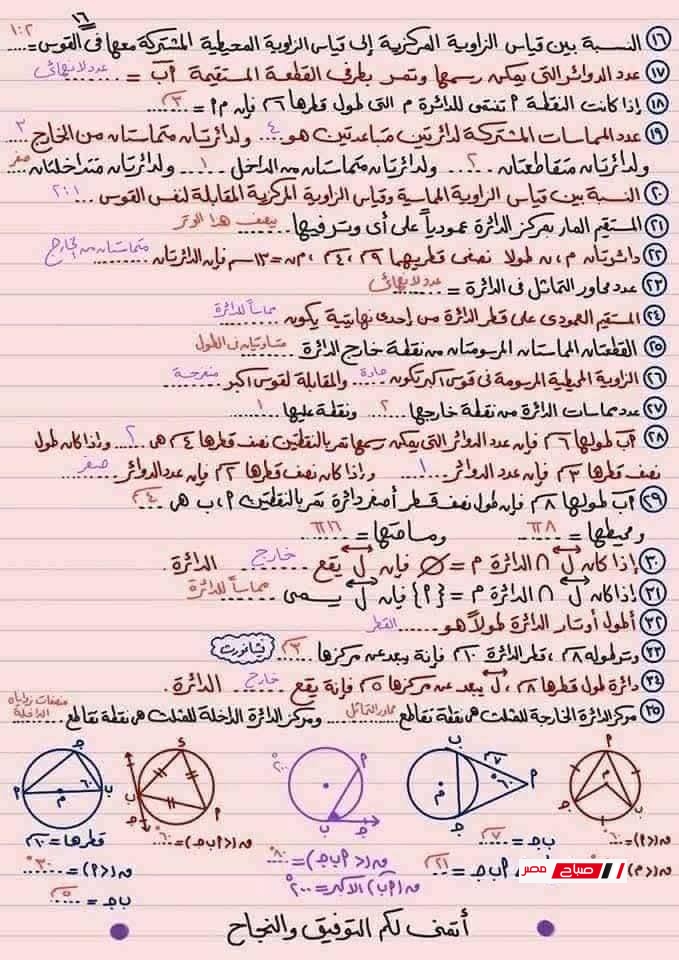 ١٦
١٦ النسبة بين قياس الزاوية المركزية إلى قياس الزاوية المحيطية المشتركة معها في القوس = ١:٢
١٧ عدد الدوائر التي يمكن رسمها وتمر بطرفي القطعة المستقيمة أب = عدد لا نهائي
١٨ إذا كانت النقطة أ تنتمي للدائرة م التي طول قطرها ٦سم فإن م أ = ٣سم
١٩ عدد المماسات المشتركة لدائرتين متباعدتين هو ٤ ولدائرتان متماستان من الخارج ٣
ولدائرتان متقاطعتان ٢ ولدائرتان متماستان من الداخل ١ ولدائرتان متداخلتان صفر
٢٠ النسبة بين قياس الزاوية المماسية وقياس الزاوية المركزية المقابلة لنفس القوس ٢:١
٢١ المستقيم المار بمركز الدائرة عمودياً على أي وتر فيها ينصف هذا الوتر
٢٢ دائرتان م، ن طولا نصفي قطريهما ٩سم، ٤سم، م ن = ١٣سم فإن الدائرتان متماستان من الخارج
٢٣ عدد محاور التماثل في الدائرة = عدد لا نهائي
٢٤ المستقيم العمودي على قطر الدائرة من إحدى نهايتيه يكون مماساً للدائرة
٢٥ القطعتان المماستان المرسومتان من نقطة خارج الدائرة متساويتان في الطول
٢٦ الزاوية المحيطية المرسومة في قوس أكبر تكون حادة والمقابلة لقوس أكبر منفرجة
٢٧ عدد مماسات الدائرة من نقطة خارجها ٢ ونقطة عليها ١
٢٨ أب طولها ٦سم فإن عدد الدوائر التي يمكن رسمها تمر بالنقطتين نصف قطرها ٤سم هي ٢ وإذا كان طول
نصف قطرها ٣سم فإن عدد الدوائر ١ وإذا كان نصف قطرها ٢سم فإن عدد الدوائر صفر
٢٩ أب طولها ٨سم فإن طول نصف قطر أصغر دائرة تمر بالنقطتين أ، ب هي ٤سم
ومحيطها = π٨ ومساحتها = π١٦
٣٠ إذا كان ل ∩ الدائرة م = ∅ فإن ل يقع خارج الدائرة.
٣١ إذا كان ل ∩ الدائرة م = {أ} فإن ل يسمى مماساً للدائرة
٣٢ أطول أوتار الدائرة طولاً هو القطر
٣٣ وتر طوله ٨سم، قطر الدائرة ١٠سم فإنه يبعد عن مركزها ٣سم فيثاغورث
٣٤ دائرة طول قطرها ٨سم، ل يبعد عن مركزها ٥سم فإنه يقع خارج الدائرة.
٣٥ مركز الدائرة الخارجة للمثلث هي نقطة تقاطع محاور التماثل ومركز الدائرة الداخلة للمثلث هي نقطة تقاطع منصفات زواياه الداخلة
أ م ب ج
ب ٧سم أ ٦٠° م ج
٢٠٠° أ ب ج
ء ب أ ج
ج ب ٦٠° م أ
ق(أ) = ٦٠°
ب ج = ٧سم
ق(أ ب ج) = ٨٠°
ق(أ ب ج) = ٦٠°
قطرها = ١٠سم
ق(م) =
أ ب ج = ٢١سم
ق(أب) الأكبر = ٢٠٠°
ق(أ) = ٣٠°
ب ج = ٥سم
صباح مصر
أتمنى لكم التوفيق والنجاح